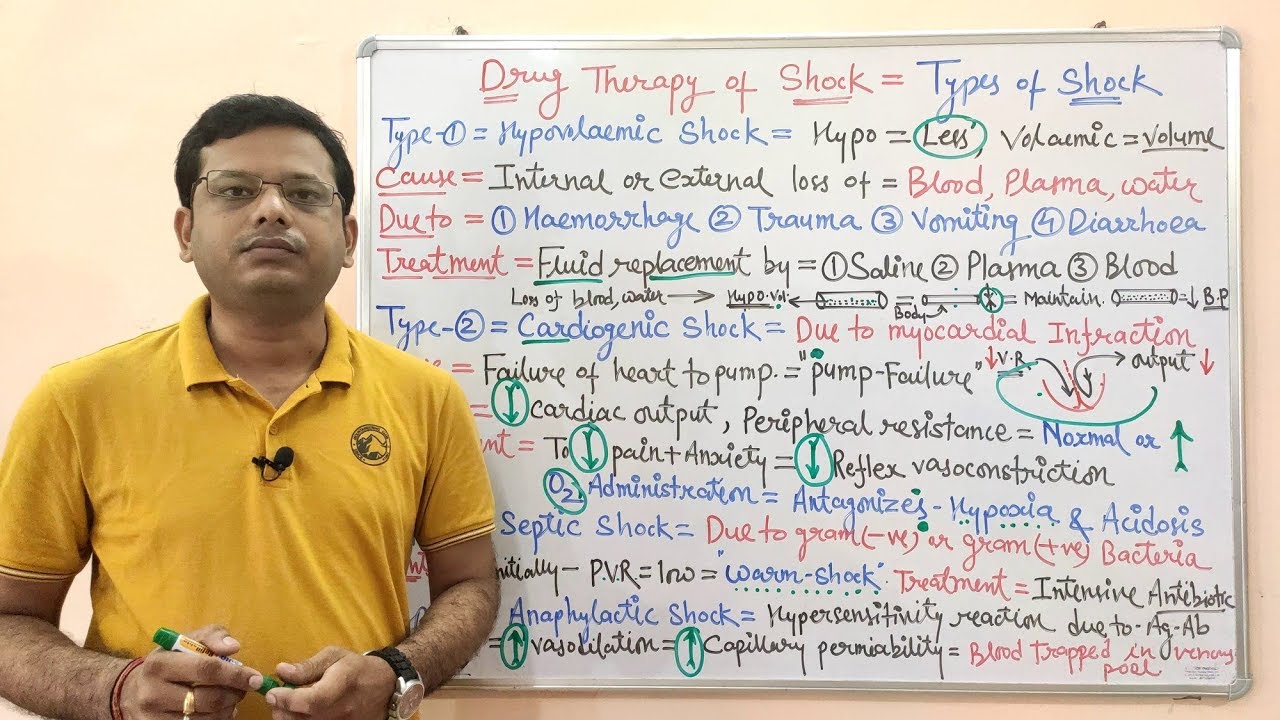 Drug Therapy of Shock = Types of Shock
Type-① = Hypovolaemic Shock = Hypo = Less, Volaemic = Volume
Cause = Internal or external loss of = Blood, Plasma, water
Due to = ① Haemorrhage ② Trauma ③ Vomiting ④ Diarrhoea
Treatment = Fluid replacement by = ① Saline ② Plasma ③ Blood
Loss of blood, water → Hypo. Vol. ← = Body = Maintain. = ↓ B.P
Type-② = Cardiogenic Shock = Due to myocardial Infraction
= Failure of heart to pump. = "pump-Failure" ↓ V.R → output ↓
= ↓ cardiac output, Peripheral resistance = Normal or ↑
nt = To ↓ pain + Anxiety = ↓ Reflex vasoconstriction
O2, Administration = Antagonizes - Hypoxia & Acidosis
Septic Shock = Due to gram (-ve) or gram (+ve) Bacteria
nitially - P.V.R = low = "warm-shock" Treatment = Intensive Antibiotic
Anaphylactic Shock = Hypersensitivity reaction due, to - Ag-Ab
= ↑ vasodilation = ↑ Capillary permiability = Blood trapped in venous
pool